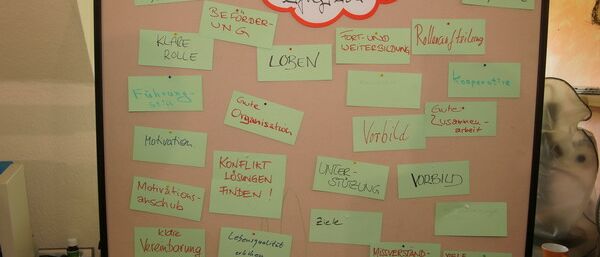 BEFÖRDER-
UNG
KLARE
ROLLE
LOBEN
FORT- UND
WEITERBILDUNG
Rollenaufteilung
Führungs-
stil
Gute
Organisation
Vorbild
Gute
Zusammen-
arbeit
Kooperative
Motivation
KONFLIKT
LÖSUNGEN
FINDEN!
UNTER-
STÜTZUNG
VORBILD
Motivations-
anschub
Ziele
Klare
Vereinbarung
Lebensqualität
erhöhen
MISSVERSTAND-
VIELE